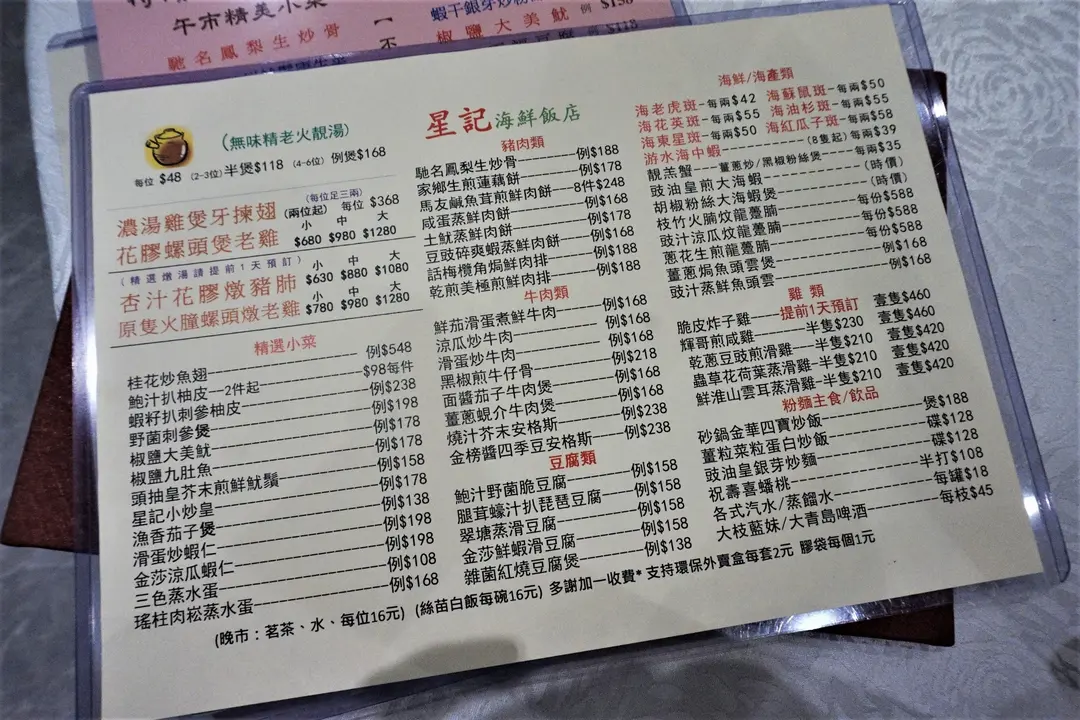 午市精美小菜
馳名鳳梨生炒骨
椒鹽大美魷 例
(無味精老火靚湯)
每位 $48 (2-3位)半煲$118 (4-6位) 例煲$168
(每位足三兩)
濃湯雞煲牙揀翅 (兩位起) 每位 $368
小 中 大
花膠螺頭煲老雞 $680 $980 $1280
(精選燉湯請提前1天預訂)
小 中 大
杏汁花膠燉豬肺 $630 $880 $1080
小 中 大
原隻火腫螺頭燉老雞 $780 $980 $1280
精選小菜
桂花炒魚翅 例$548
鮑汁扒柚皮--2件起 $98每件
蝦籽扒刺參柚皮 例$238
野菌刺參煲 例$198
椒鹽大美魷 例$178
椒鹽九肚魚 例$178
頭抽皇芥末煎鮮魷鬚 例$158
星記小炒皇 例$178
漁香茄子煲 例$138
滑蛋炒蝦仁 例$198
金莎涼瓜蝦仁 例$198
三色蒸水蛋 例$108
瑤柱肉崧蒸水蛋 例$168
星記海鮮飯店
豬肉類
馳名鳳梨生炒骨 例$188
家鄉生煎蓮藕餅 例$178
馬友鹹魚茸煎鮮肉餅 8件$248
咸蛋蒸鮮肉餅 例$168
土魷蒸鮮肉餅 例$178
豆豉碎爽蝦蒸鮮肉餅 例$168
話梅欖角焗鮮肉排 例$188
乾煎美極煎鮮肉排 例$188
牛肉類
鮮茄滑蛋煮鮮牛肉 例$168
涼瓜炒牛肉 例$168
滑蛋炒牛肉 例$168
黑椒煎牛仔骨 例$218
面醬茄子牛肉煲 例$168
薑蔥蜆介牛肉煲 例$168
燒汁芥末安格斯 例$238
金榜醬四季豆安格斯 例$238
豆腐類
鮑汁野菌脆豆腐 例$158
腿茸蠔汁扒琵琶豆腐 例$158
翠塘蒸滑豆腐 例$158
金莎鮮蝦滑豆腐 例$158
雜菌紅燒豆腐煲 例$138
海鮮/海產類
海老虎斑-每兩$42 海蘇鼠斑-每兩$50
海花英斑-每兩$55 海油杉斑-每兩$55
海東星斑-每兩$50 海紅瓜子斑-每兩$58
游水海中蝦 (8隻起)每兩$39
靚羔蟹---薑蔥炒/黑椒粉絲煲 每兩$35
豉油皇煎大海蝦 (時價)
胡椒粉絲大海蝦煲 (時價)
枝竹火腩炆龍躉腩 每份$588
豉汁涼瓜炆龍躉腩 每份$588
蔥花生煎龍躉腩 每份$588
薑蔥焗魚頭雲煲 例$168
豉汁蒸鮮魚頭雲 例$168
雞類
脆皮炸子雞---提前1天預訂 壹隻$460
輝哥煎咸雞 半隻$230 壹隻$460
乾蔥豆豉煎滑雞--半隻$210 壹隻$420
蟲草花荷葉蒸滑雞--半隻$210 壹隻$420
鮮淮山雲耳蒸滑雞--半隻$210 壹隻$420
粉麵主食/飲品
砂鍋金華四寶炒飯 煲$188
薑粒菜粒蛋白炒飯 碟$128
豉油皇銀芽炒麵 碟$128
祝壽喜蟠桃 半打$108
各式汽水/蒸餾水 每罐$18
大枝藍妹/大青島啤酒 每枝$45
(晚市：茗茶、水、每位16元) (絲苗白飯每碗16元) 多謝加一收費* 支持環保外賣盒每套2元 膠袋每個1元